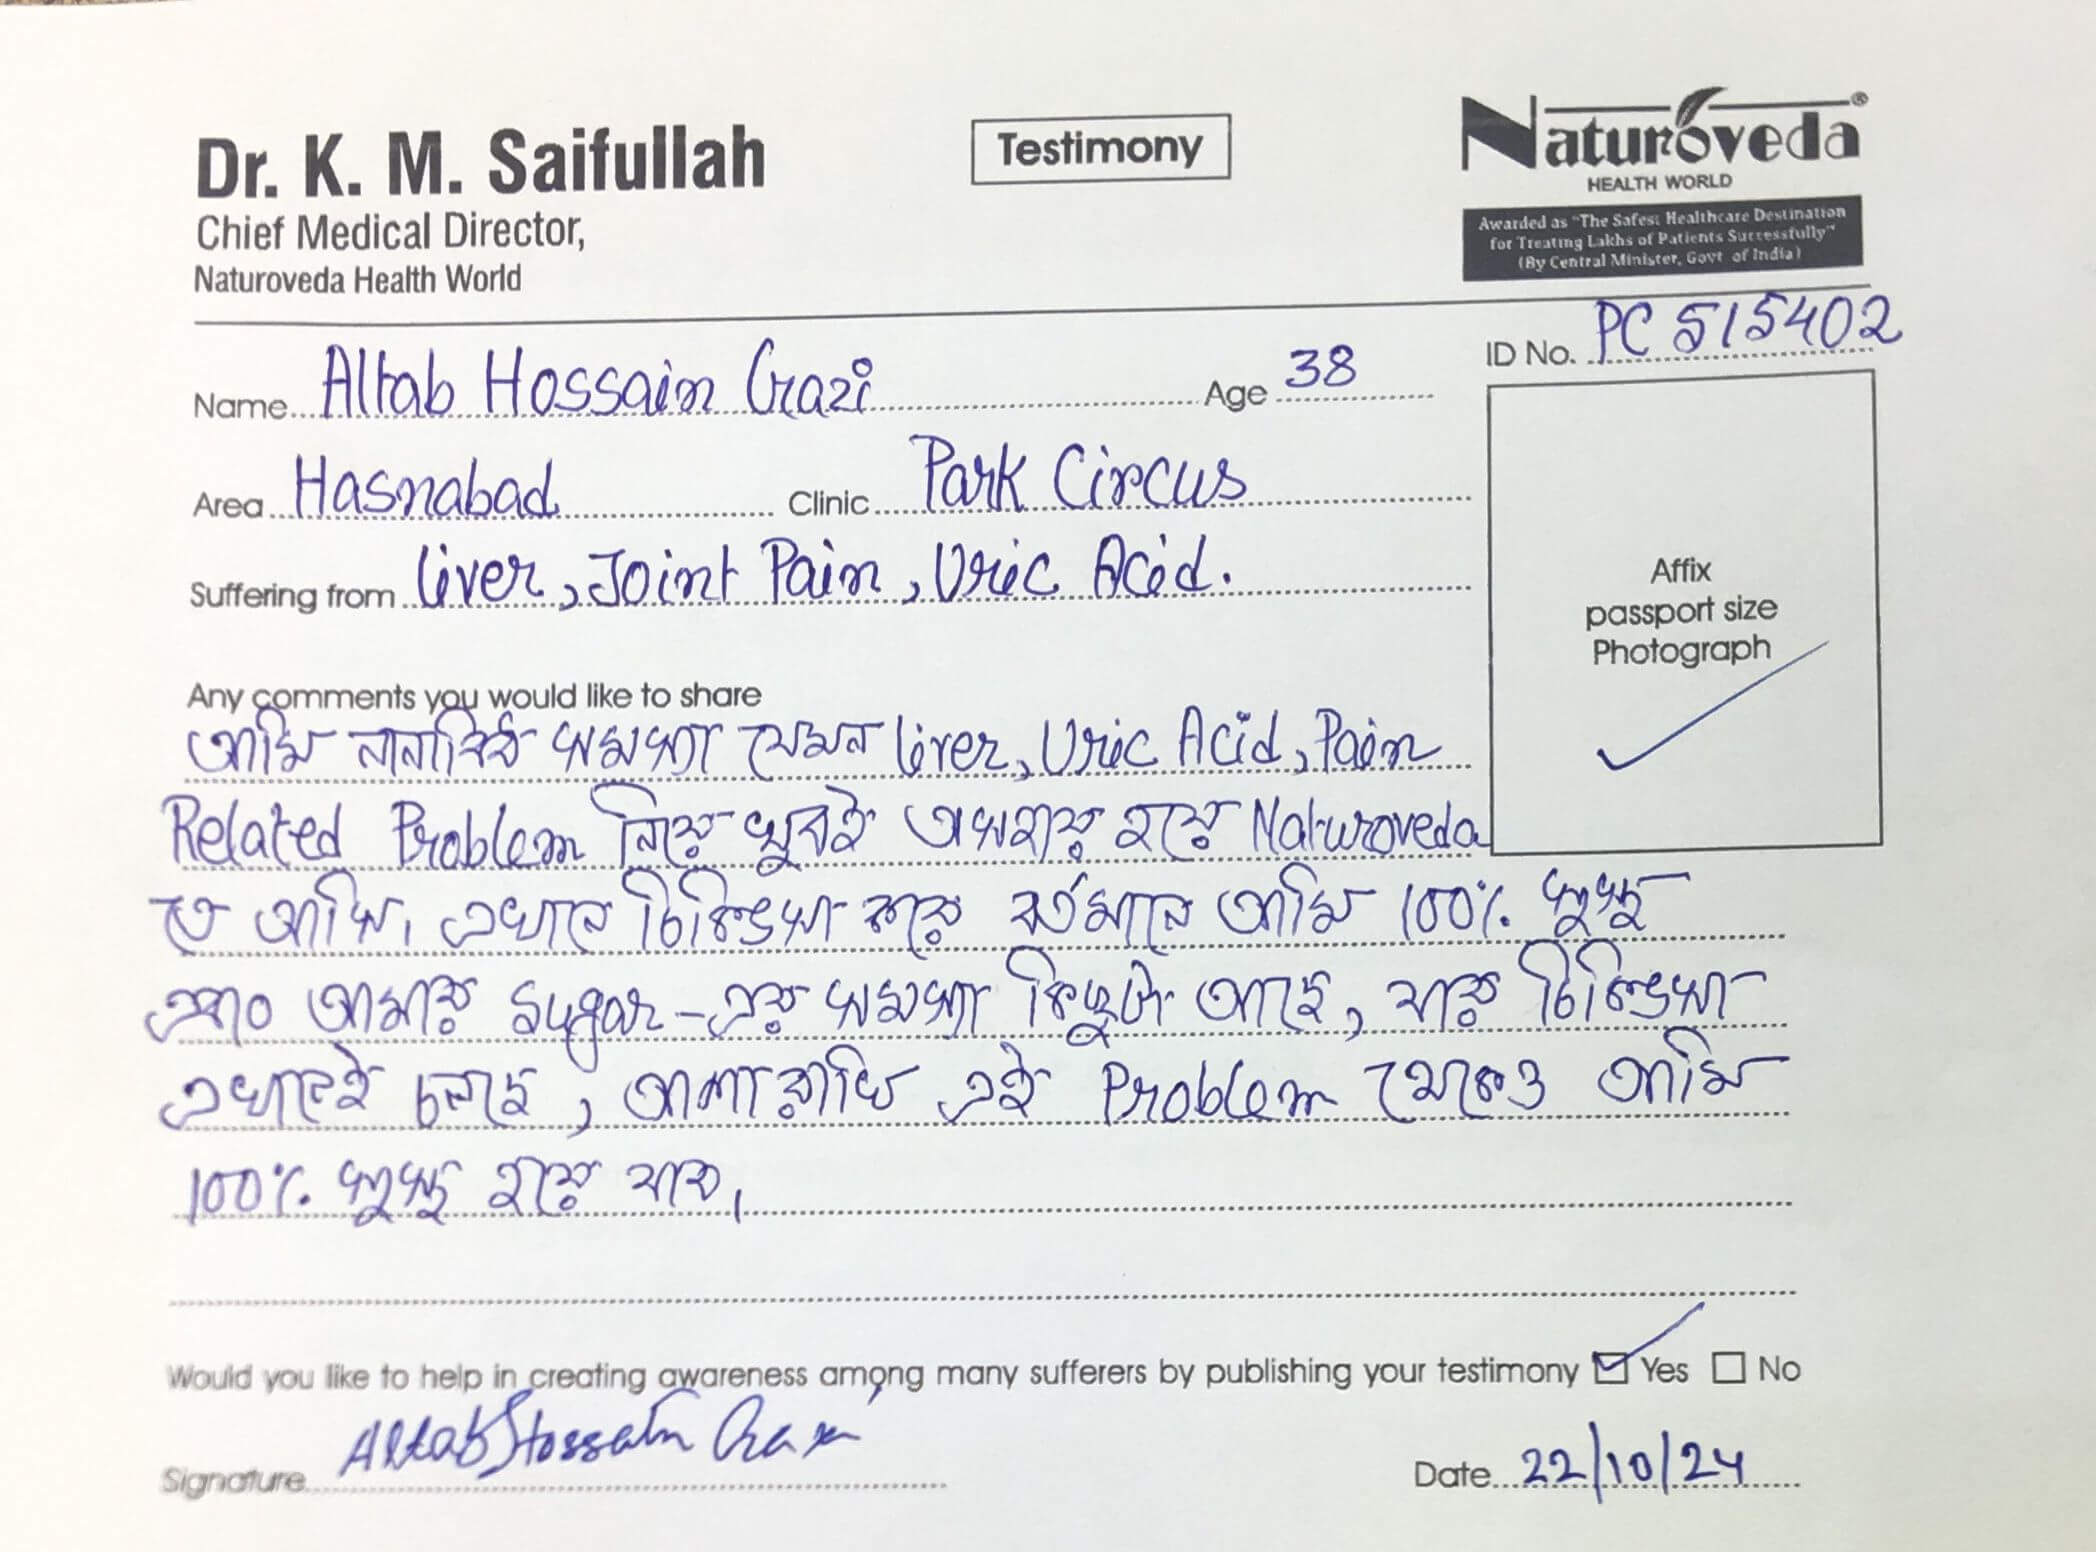 Dr. K. M. Saifullah
Chief Medical Director,
Naturoveda Health World
Testimony
Naturoveda®
HEALTH WORLD
Awarded as "The Safest Healthcare Destination
for Treating Lakhs of Patients Successfully"
(By Central Minister, Govt of India)
ID No. PC 515402
Name Altab Hossain Gazi Age 38
Area Hasnabad Clinic Park Circus
Suffering from Liver, Joint Pain, Uric Acid.
Affix
passport size
Photograph
Any comments you would like to share
আমি নানাবিধ সমস্যা যেমন liver, Uric Acid, Pain
Related Problem নিয়ে খুবই অসহায় হয়ে Naturoveda
তে আসি। এখানে চিকিৎসা করে বর্তমানে আমি 100% সুস্থ
এবং আমার Sugar-এর সমস্যা কিছুটা আছে, যার চিকিৎসা
এখানেই চলছে, আশা রাখি এই Problem থেকেও আমি
100% সুস্থ হয়ে যাব।
Would you like to help in creating awareness among many sufferers by publishing your testimony Yes No
Signature Altab Hossain Gazi
Date 22/10/24